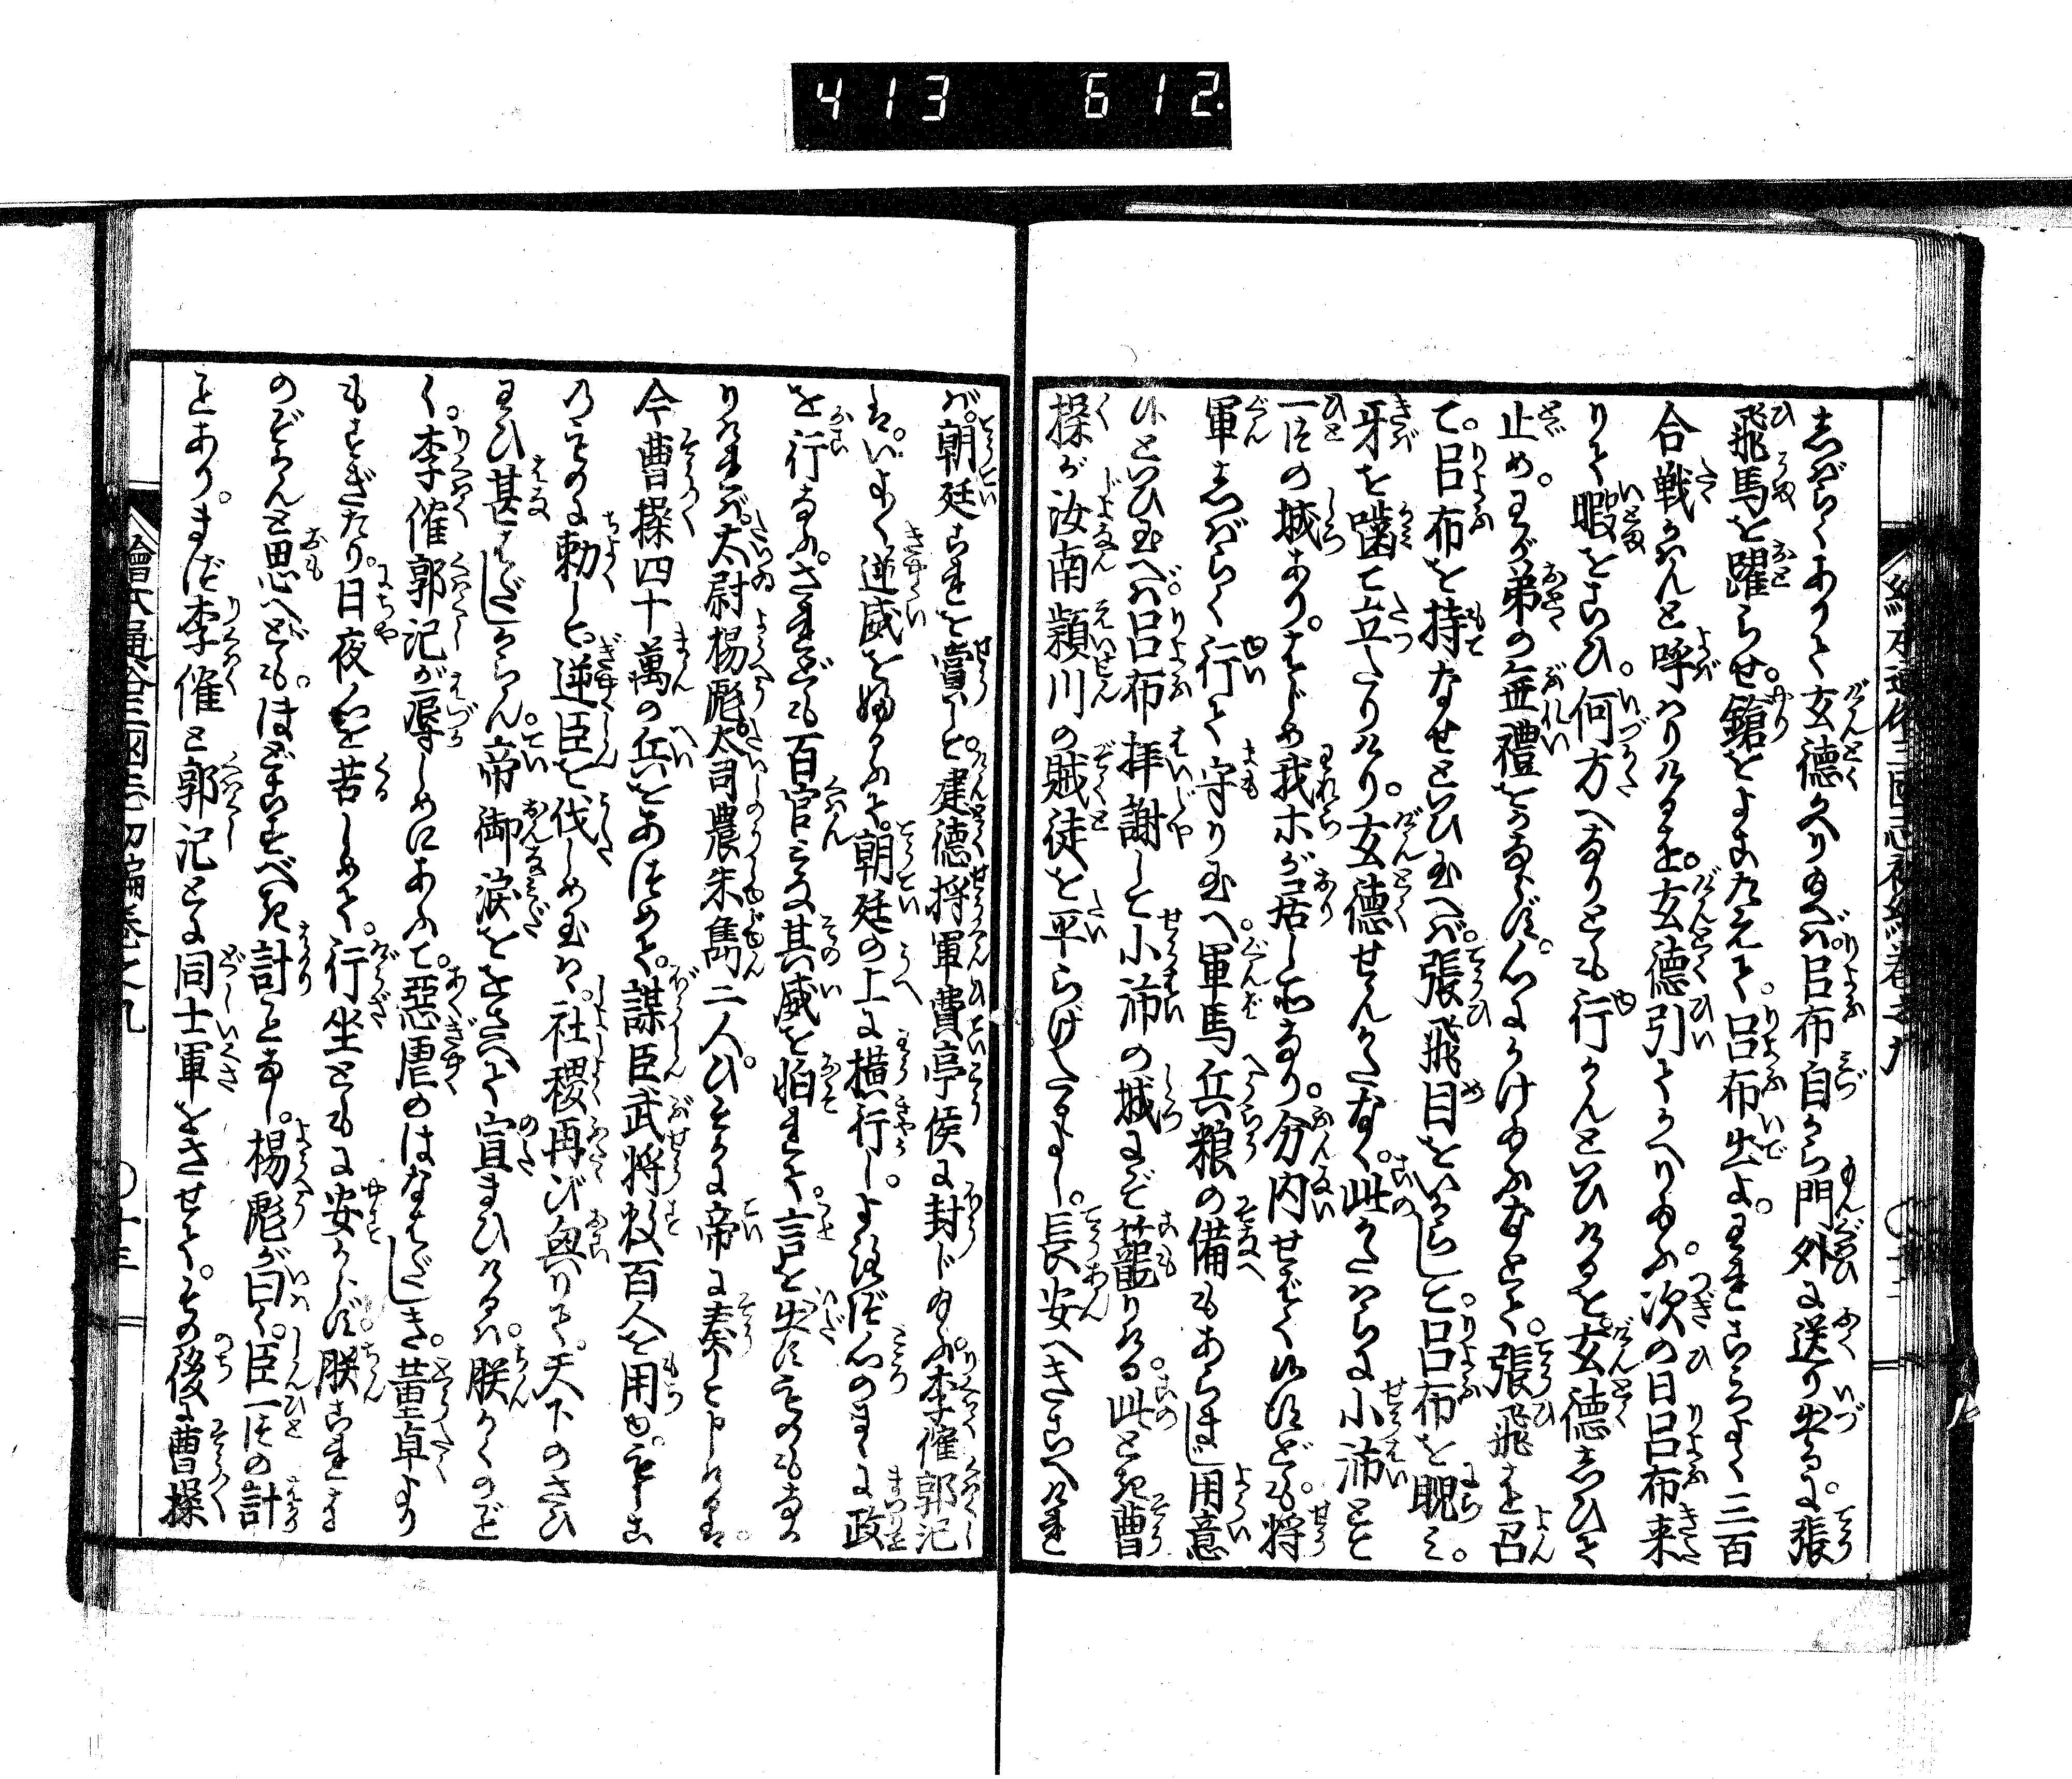 413 612
しばらくありて玄徳久り給へば。呂布自から門外に送り出るに。張
飛馬を躍らせ。鎗をよこたえて。呂布出よ。われこゝろよく三百
合戦かはんと呼はりけるを。玄徳引てかへり給ふ。次の日呂布来
りて暇をこひ。何方へなりとも行かんといひけるを。玄徳しひて
止め。わが弟の無禮をなさず。心にかけ給ふなとて。張飛を召
て。呂布を持なせといひ玉へば。張飛目をいからして。呂布を睨み。
牙を噛て立たりけり。玄徳せんかたなく。此かたはらに小沛とて
一ツの城あり。はじめ我ホが居し所なり。分内せばく候へども。将
軍しばらく行て守り玉へ。軍馬兵粮の備もあらまし用意
候といひ玉へば。呂布拝謝して小沛の城にぞ籠りける。此とき曹
操が汝南潁川の賊徒を平らげたるよし。長安へきこへければ
ば。朝廷これを賞して。建徳将軍費亭侯に封じ給ふ。李傕郭汜
は。いよ〳〵逆威を好るふて。朝廷の上に横行し。よろづ心のまゝに政
を行なふ。されども百官みな其威を怕れて。言を出すものもなか
りければ。太尉楊彪。太司農朱雋二人。ひそかに帝に奏して申けるは。
今曹操四十萬の兵をあつめて。謀臣武将数百人を用ゆ。もしこ
のものに勅して。逆臣を伐しめ玉はゞ。社稷再び興りて。天下のさひ
わひ甚はだしからん。帝御涙をおさへて宣まひけるは。朕かくのごと
く。李傕郭汜が辱しめにあふて。惡虐のはなはだしき。董卓より
もすぎたり。日夜心を苦しめて。行坐ともに安からず。朕これをま
のぞかんと思へども。ほどこすべき計ことなし。楊彪が曰く。臣一ツの計
ことあり。まづ李傕と郭汜とに同士軍をさせて。その後に曹操